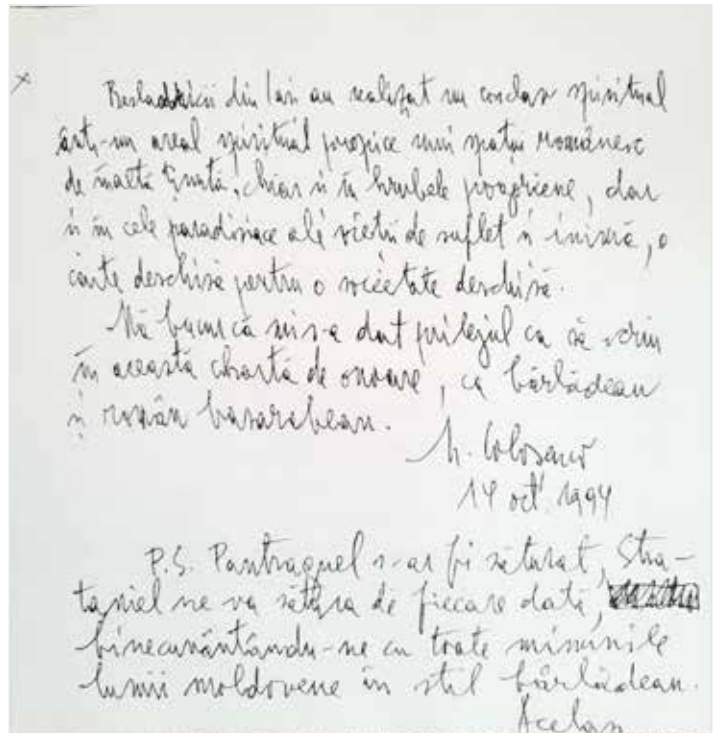 din Iași au realizat un conclav spiritual
într-un areal spiritual propice unui spațiu românesc
de înaltă ținută, chiar și în hrubele proprii, dar
și în cele paradisiace ale vieții de suflet și inimă, o
carte deschisă pentru o societate deschisă.
Mă bucur că mi s-a dat prilejul ca să scriu
în această chartă de onoare, ca bârlădean
și român basarabean.
14 oct. 1994
P.S. Pantraguel s-ar fi săturat, Stra-
taniel ne va sătura de fiecare dată,
binecuvântându-ne cu toate minunile
lumii moldovene în stil bârlădean.
Același